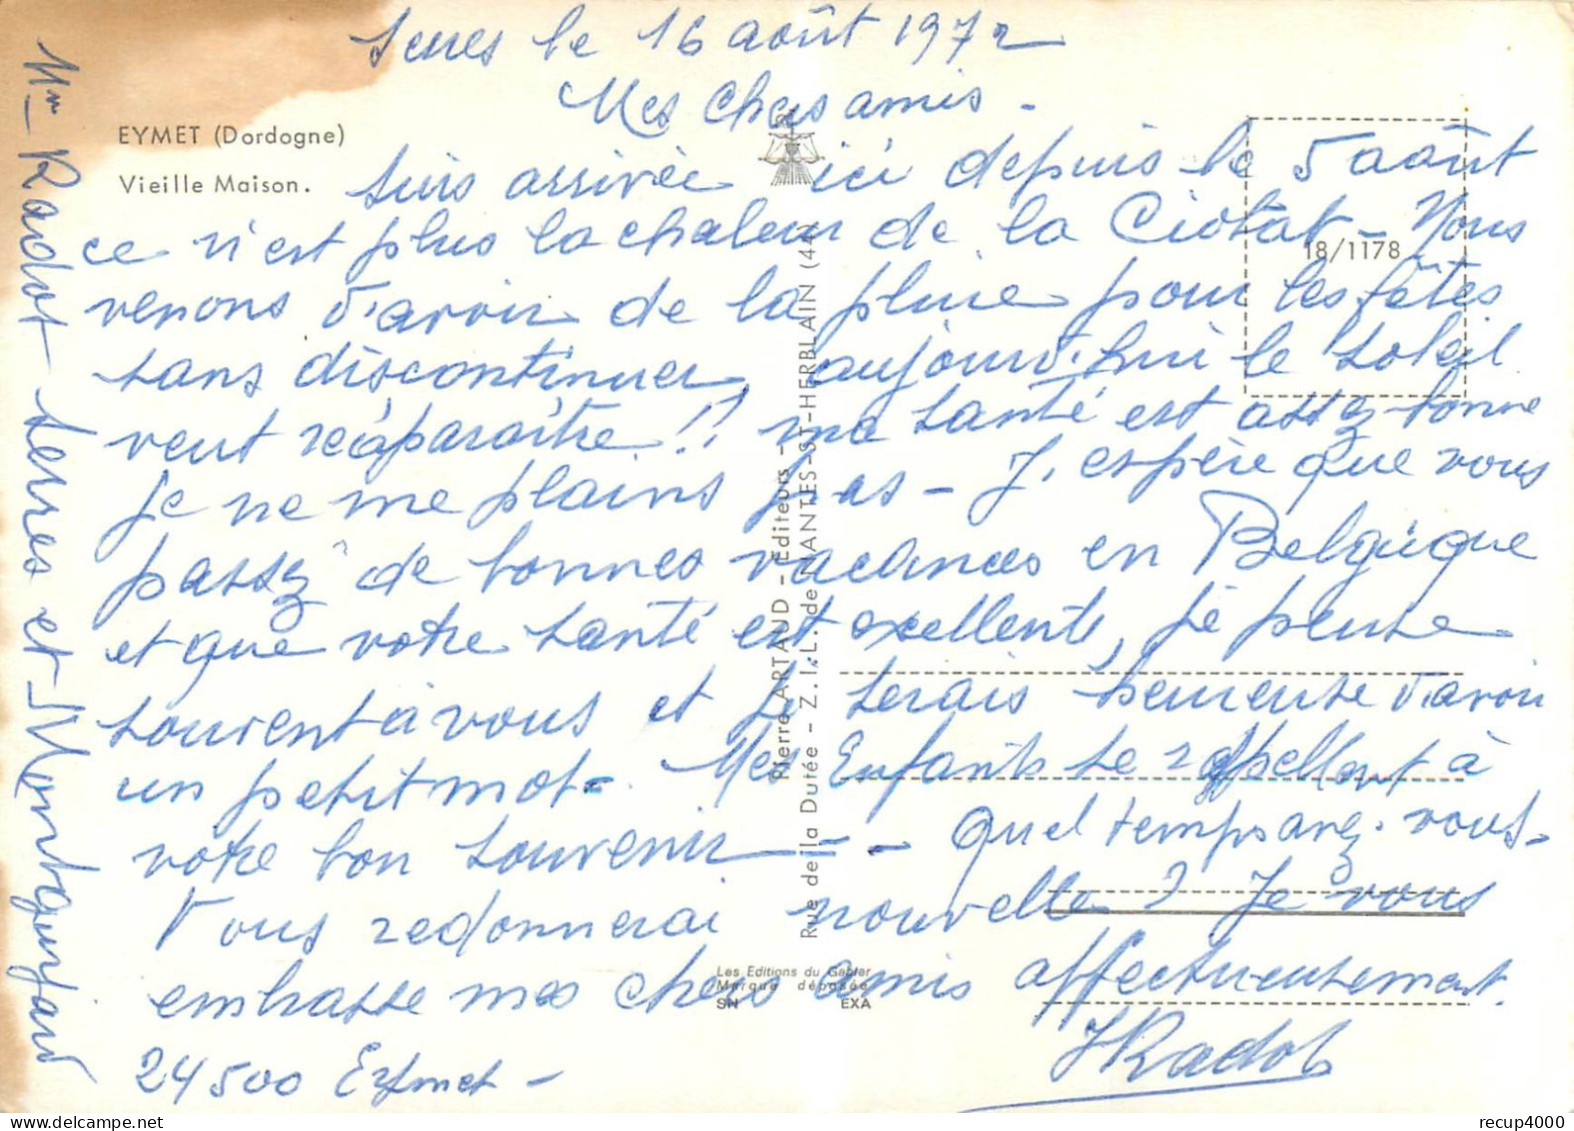 Serres le 16 août 1972
Mes Chers amis -
EYMET (Dordogne)
Vieille Maison.
suis arrivée ici depuis le 5 août
ce n'est plus la chaleur de la Ciotat - Nous
18/1178
venons d'avoir de la pluie pour les fêtes
sans discontinuer, aujourd'hui le soleil
veut réaparaître !! ma santé est assez bonne
je ne me plains pas - J'espère que vous
passez de bonnes vacances en Belgique
et que votre santé est excellente, je pense
souvent à vous et je serais heureuse d'avoir
un petit mot - Mes Enfants se rappellent à
votre bon souvenir -- - Quel temps avez-vous -
Vous redonnerai nouvelle ? Je vous
embrasse mes chers amis affectueusement.
24500 Eymet -
JRadot
Mm Radot Serres et Montguyard
Pierre ARTAUD - Editeurs -
Rue de la Dutée - Z.I.L. de NANTES-ST-HERBLAIN (44)
Les Editions du Gabier
Marque déposée
SN EXA
recup4000